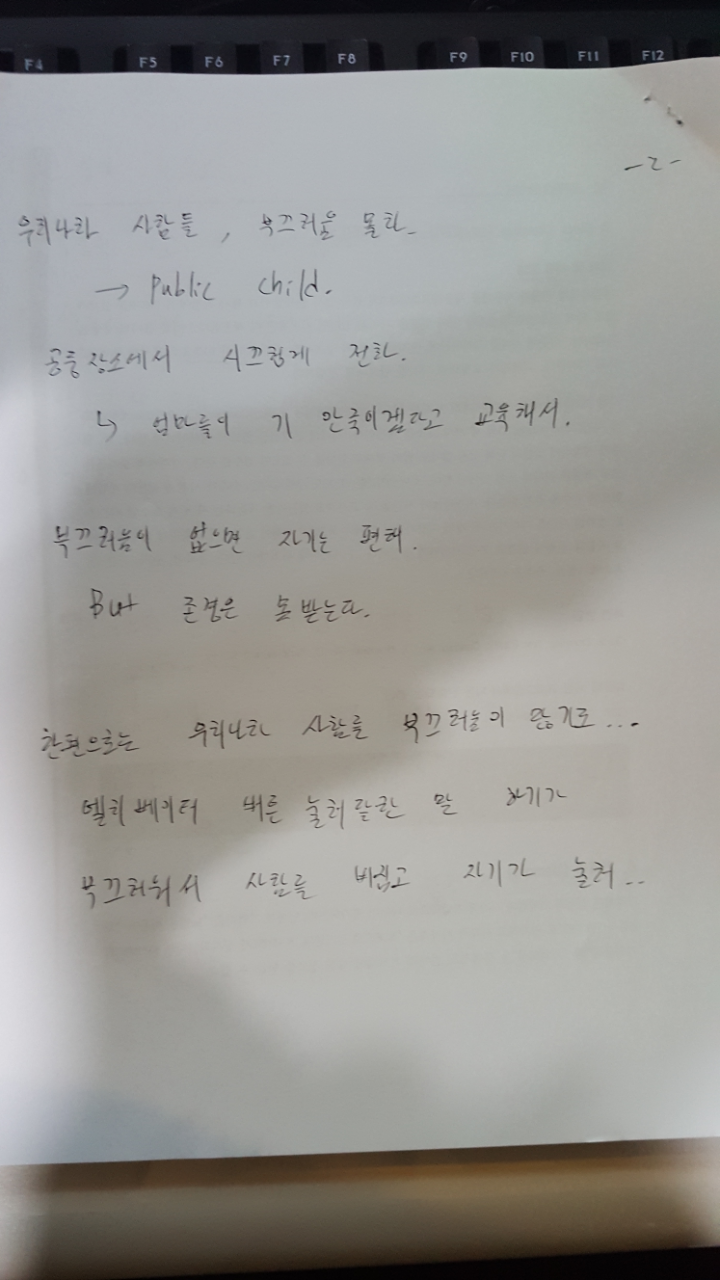 F4 F5 F6 F7 F8 F9 F10 F11 F12
-2-
우리나라 사람들, 부끄러움 몰라.
→ Public child.
공공장소에서 시끄럽게 전화.
↳ 엄마들이 기 안죽이겠다고 교육해서.
부끄러움이 없으면 자기는 편해.
But 존경은 못 받는다.
한편으로는 우리나라 사람들 부끄러움이 많기도...
엘리베이터 버튼 눌러달란 말 하기가
부끄러워서 사람들 비집고 자기가 눌러..